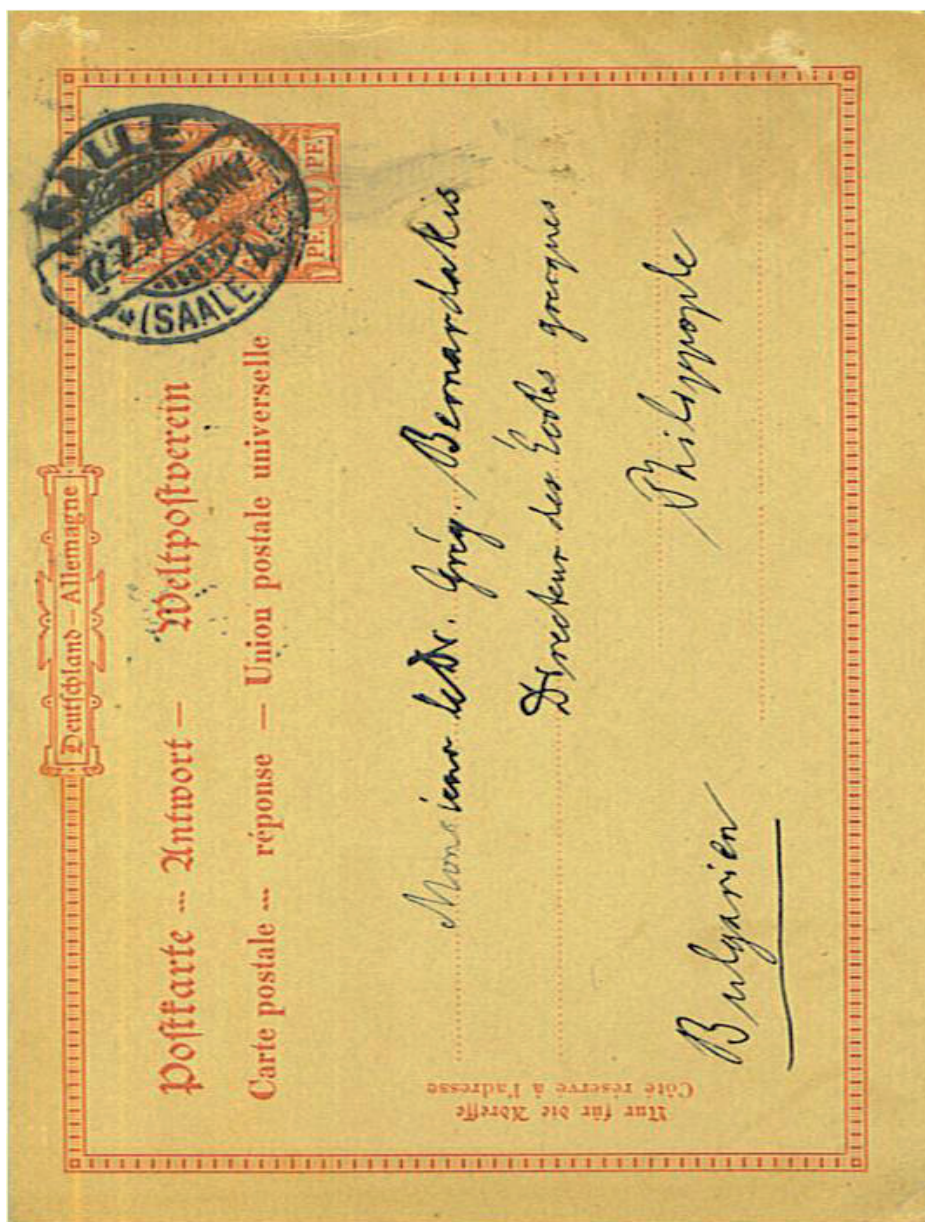 Deutschland – Allemagne
Postkarte --- Antwort – Weltpostverein
Carte postale --- réponse — Union postale universelle
HALLE
12.2.97
*(SAALE)
PF. 10 PF.
Monsieur le Dr. Grég. Bernardakis
Directeur des Écoles grecques
Philippople
Bulgarien
Nur für die Adresse
Côté réservé à l'adresse